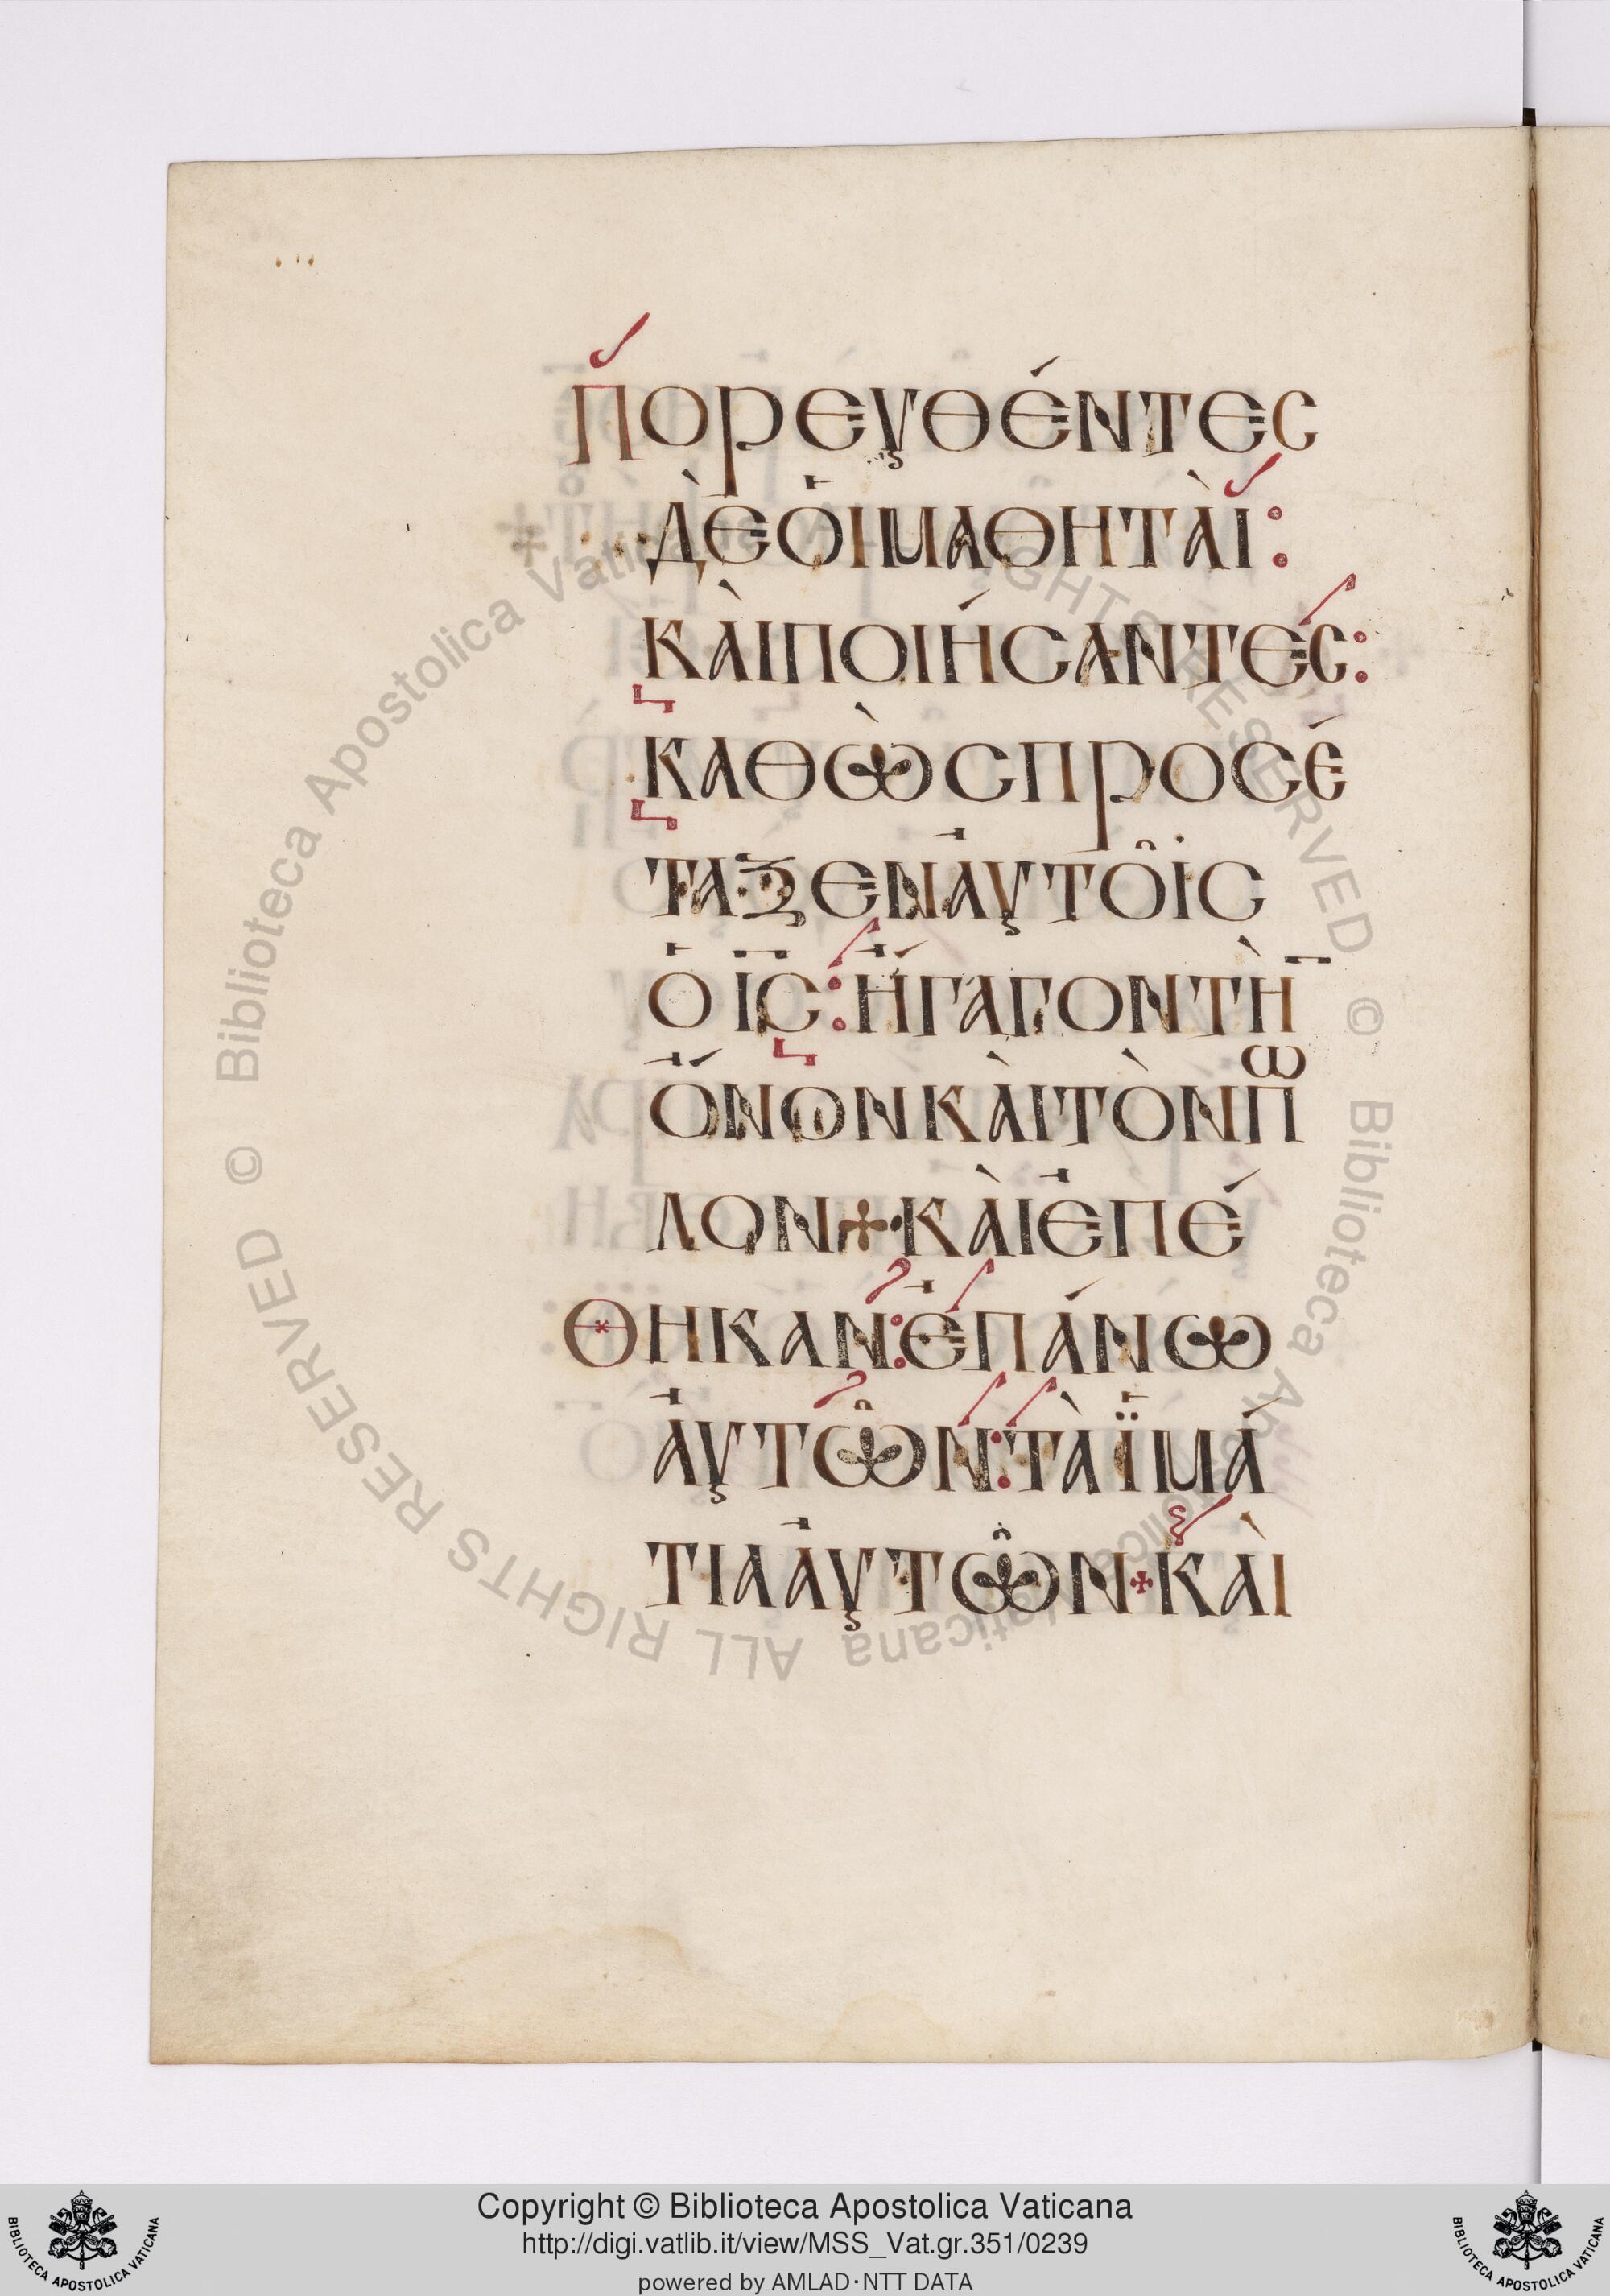 Πορευθέντες
δὲ ὁι μαθητὰι:
κὰι ποιήσαντες:
καθὼς προσέ
ταξεν ἀυτο͂ις
ὁ ις̅: ἤγαγον τὴ̅
ὄνον κὰι τὸν πω
λον+κὰι ἐπέ
θηκαν: ἐπάνω
ἀυτῶν: τὰ ἱμά
τια ἀυτῶν+κὰι
© Biblioteca Apostolica Vaticana ALL RIGHTS RESERVED © Biblioteca Apostolica Vaticana ALL RIGHTS RESERVED
Copyright © Biblioteca Apostolica Vaticana
http://digi.vatlib.it/view/MSS_Vat.gr.351/0239
powered by AMLAD·NTT DATA
BIBLIOTECA APOSTOLICA VATICANA
BIBLIOTECA APOSTOLICA VATICANA